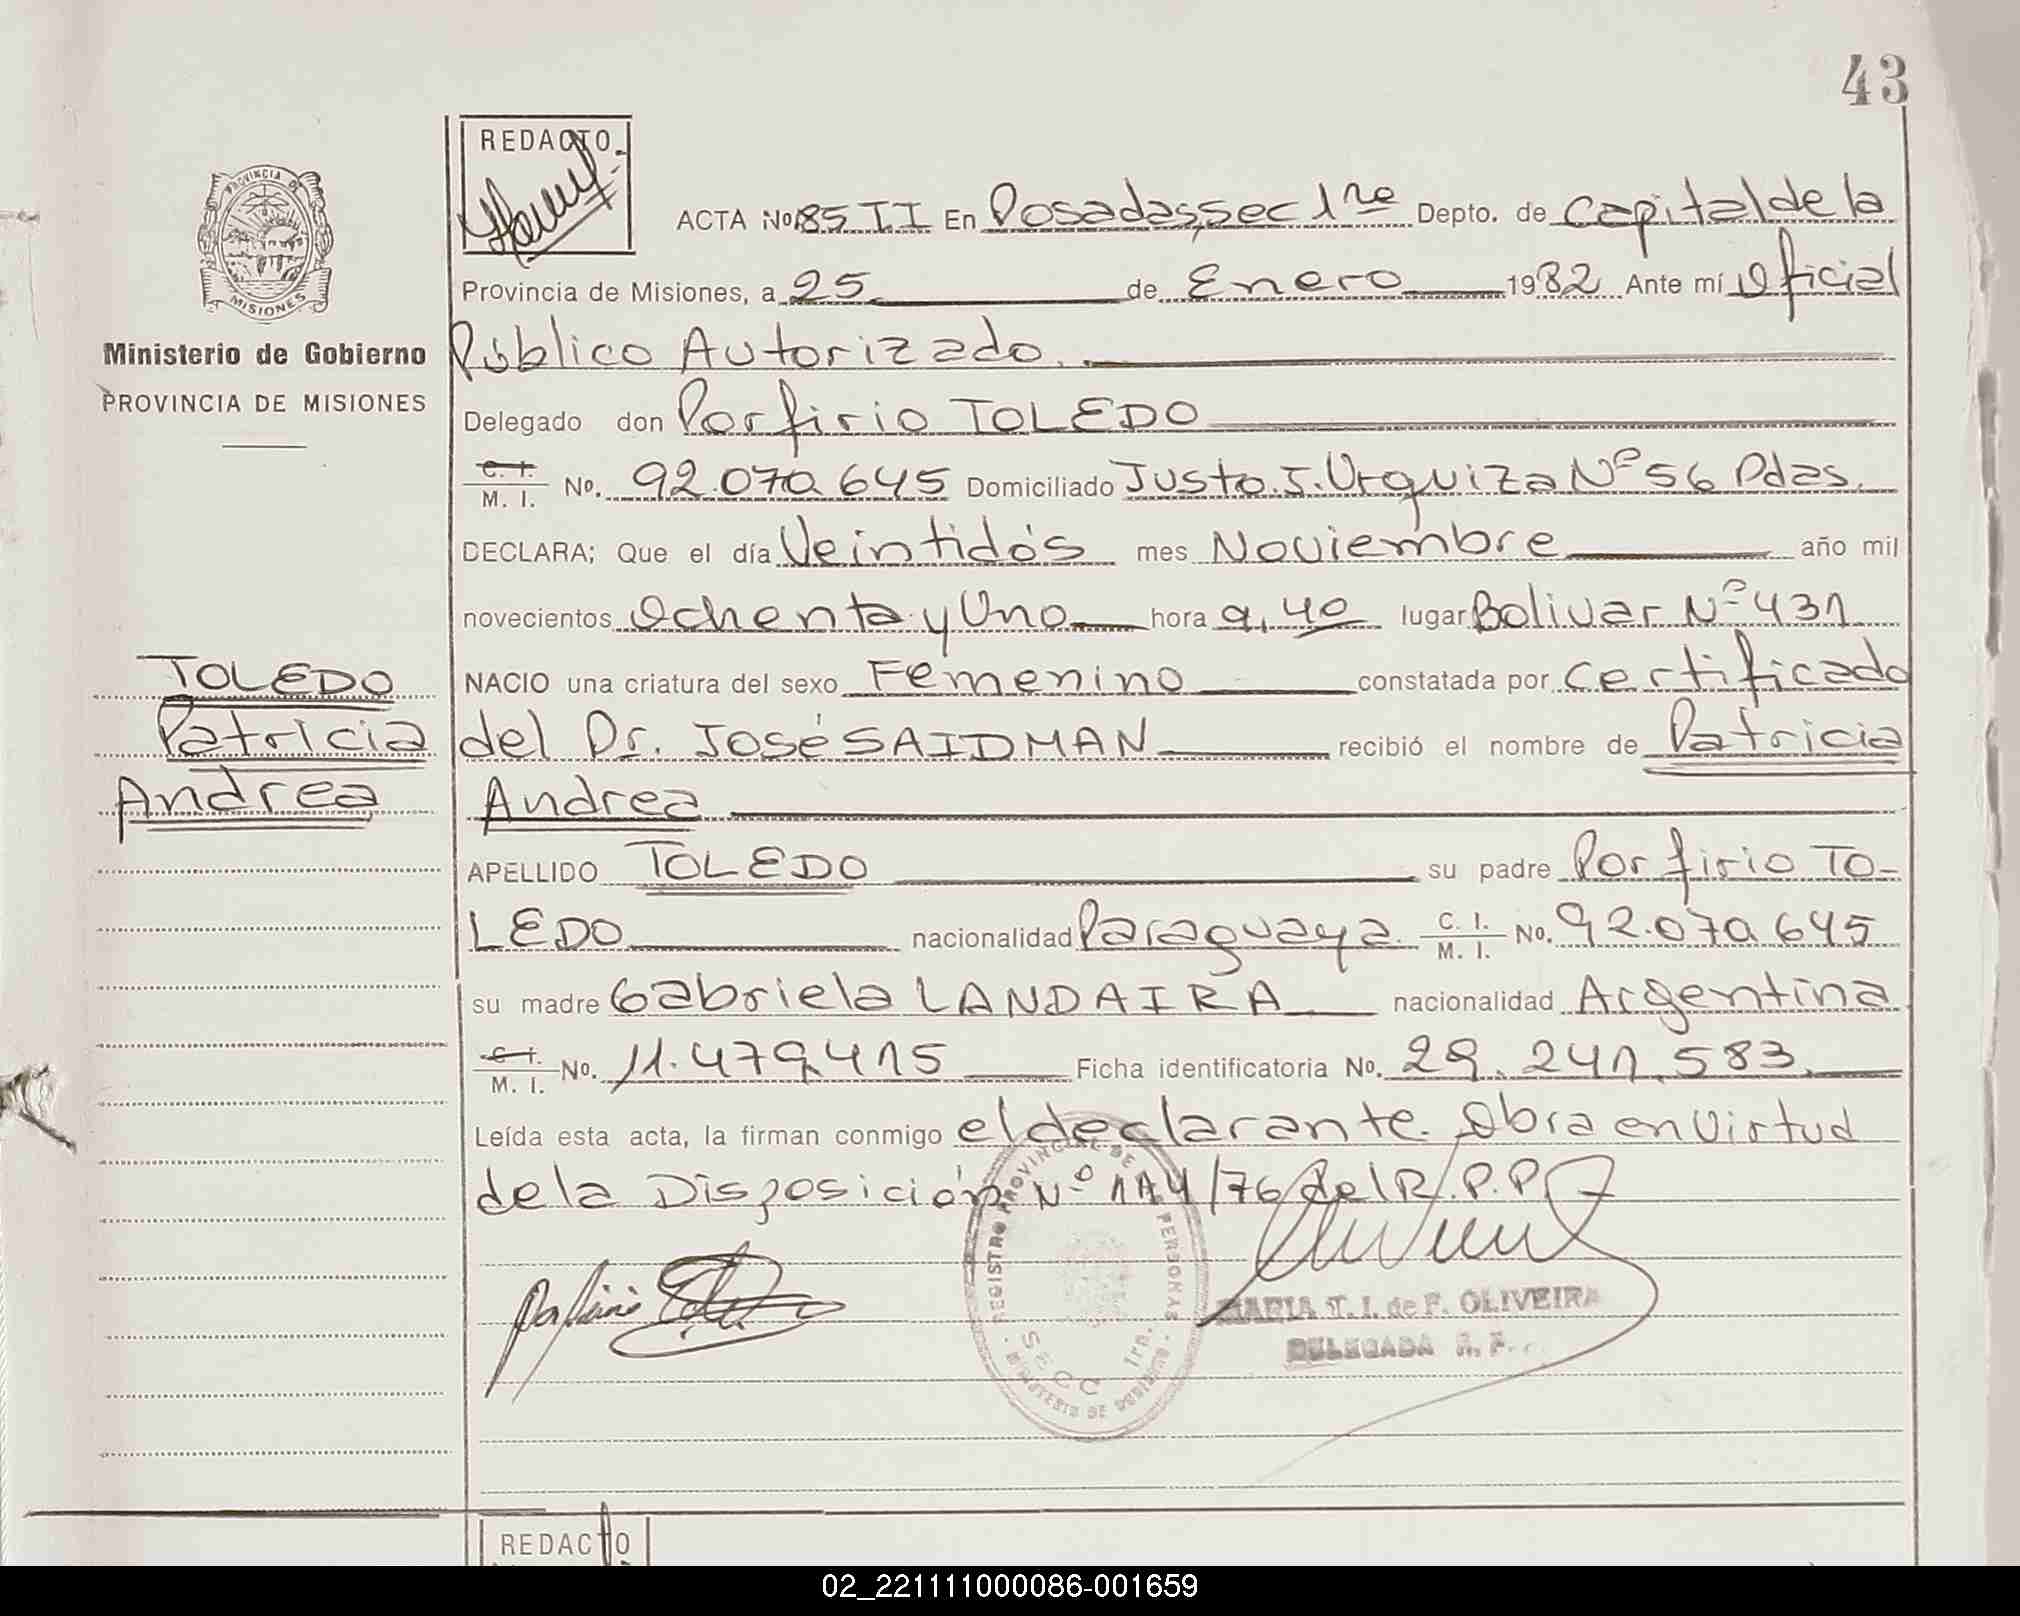 43
REDACTO.
PROVINCIA DE
MISIONES
Ministerio de Gobierno
PROVINCIA DE MISIONES
ACTA No 185 II En Posadas, sec 1ra Depto. de Capital de la
Provincia de Misiones, a 25 de Enero 1982 Ante mí Oficial
Público Autorizado.
Delegado don Porfirio TOLEDO
C. I. M. I. No. 92.070.645 Domiciliado Justo. J. Urquiza Nº 56 Pdas.
DECLARA; Que el día Veintidós mes Noviembre año mil
novecientos Ochenta y Uno hora 9,40 lugar Bolivar Nº 431
NACIO una criatura del sexo Femenino constatada por certificado
del Dr. José SAIDMAN recibió el nombre de Patricia
Andrea
TOLEDO
Patricia
Andrea
APELLIDO TOLEDO su padre Porfirio TO-
LEDO nacionalidad Paraguaya C. I. M. I. No. 92.070.645
su madre Gabriela LANDAIRA nacionalidad Argentina
C. I. M. I. No. 11.479.415 Ficha identificatoria No. 29.241.583.
Leída esta acta, la firman conmigo el declarante. Obra en virtud
de la Disposición Nº 114/76 del R.P.P.
REGISTRO PROVINCIAL DE PERSONAS
SECC 1ra.
MINISTERIO DE GOBIERNO
MARIA T. I. de F. OLIVEIRA
DELEGADA R. P.
REDACTO
02_221111000086-001659